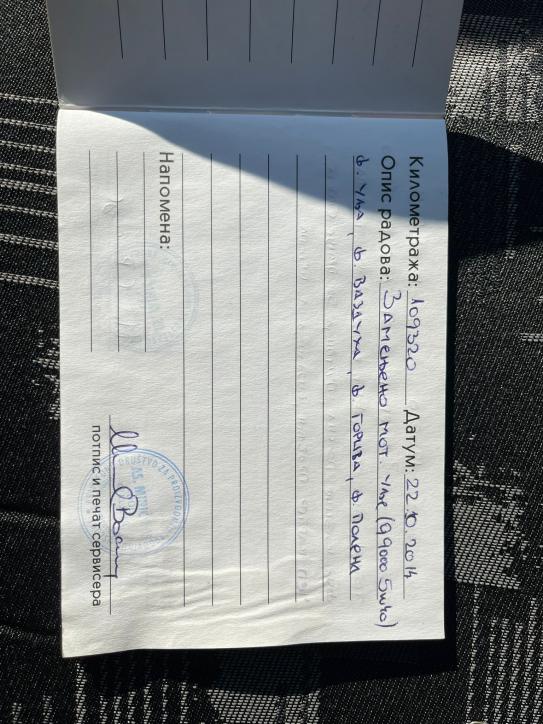 Километража: 109320 Датум: 22.10.2014
Опис радова: Замењено мот. уље (Q9000 5w40)
ф. уља, ф. ваздуха, ф. горива, ф. полена
Напомена:
DRUŠTVO ZA PROIZVODNJU
потпис и печат сервисера